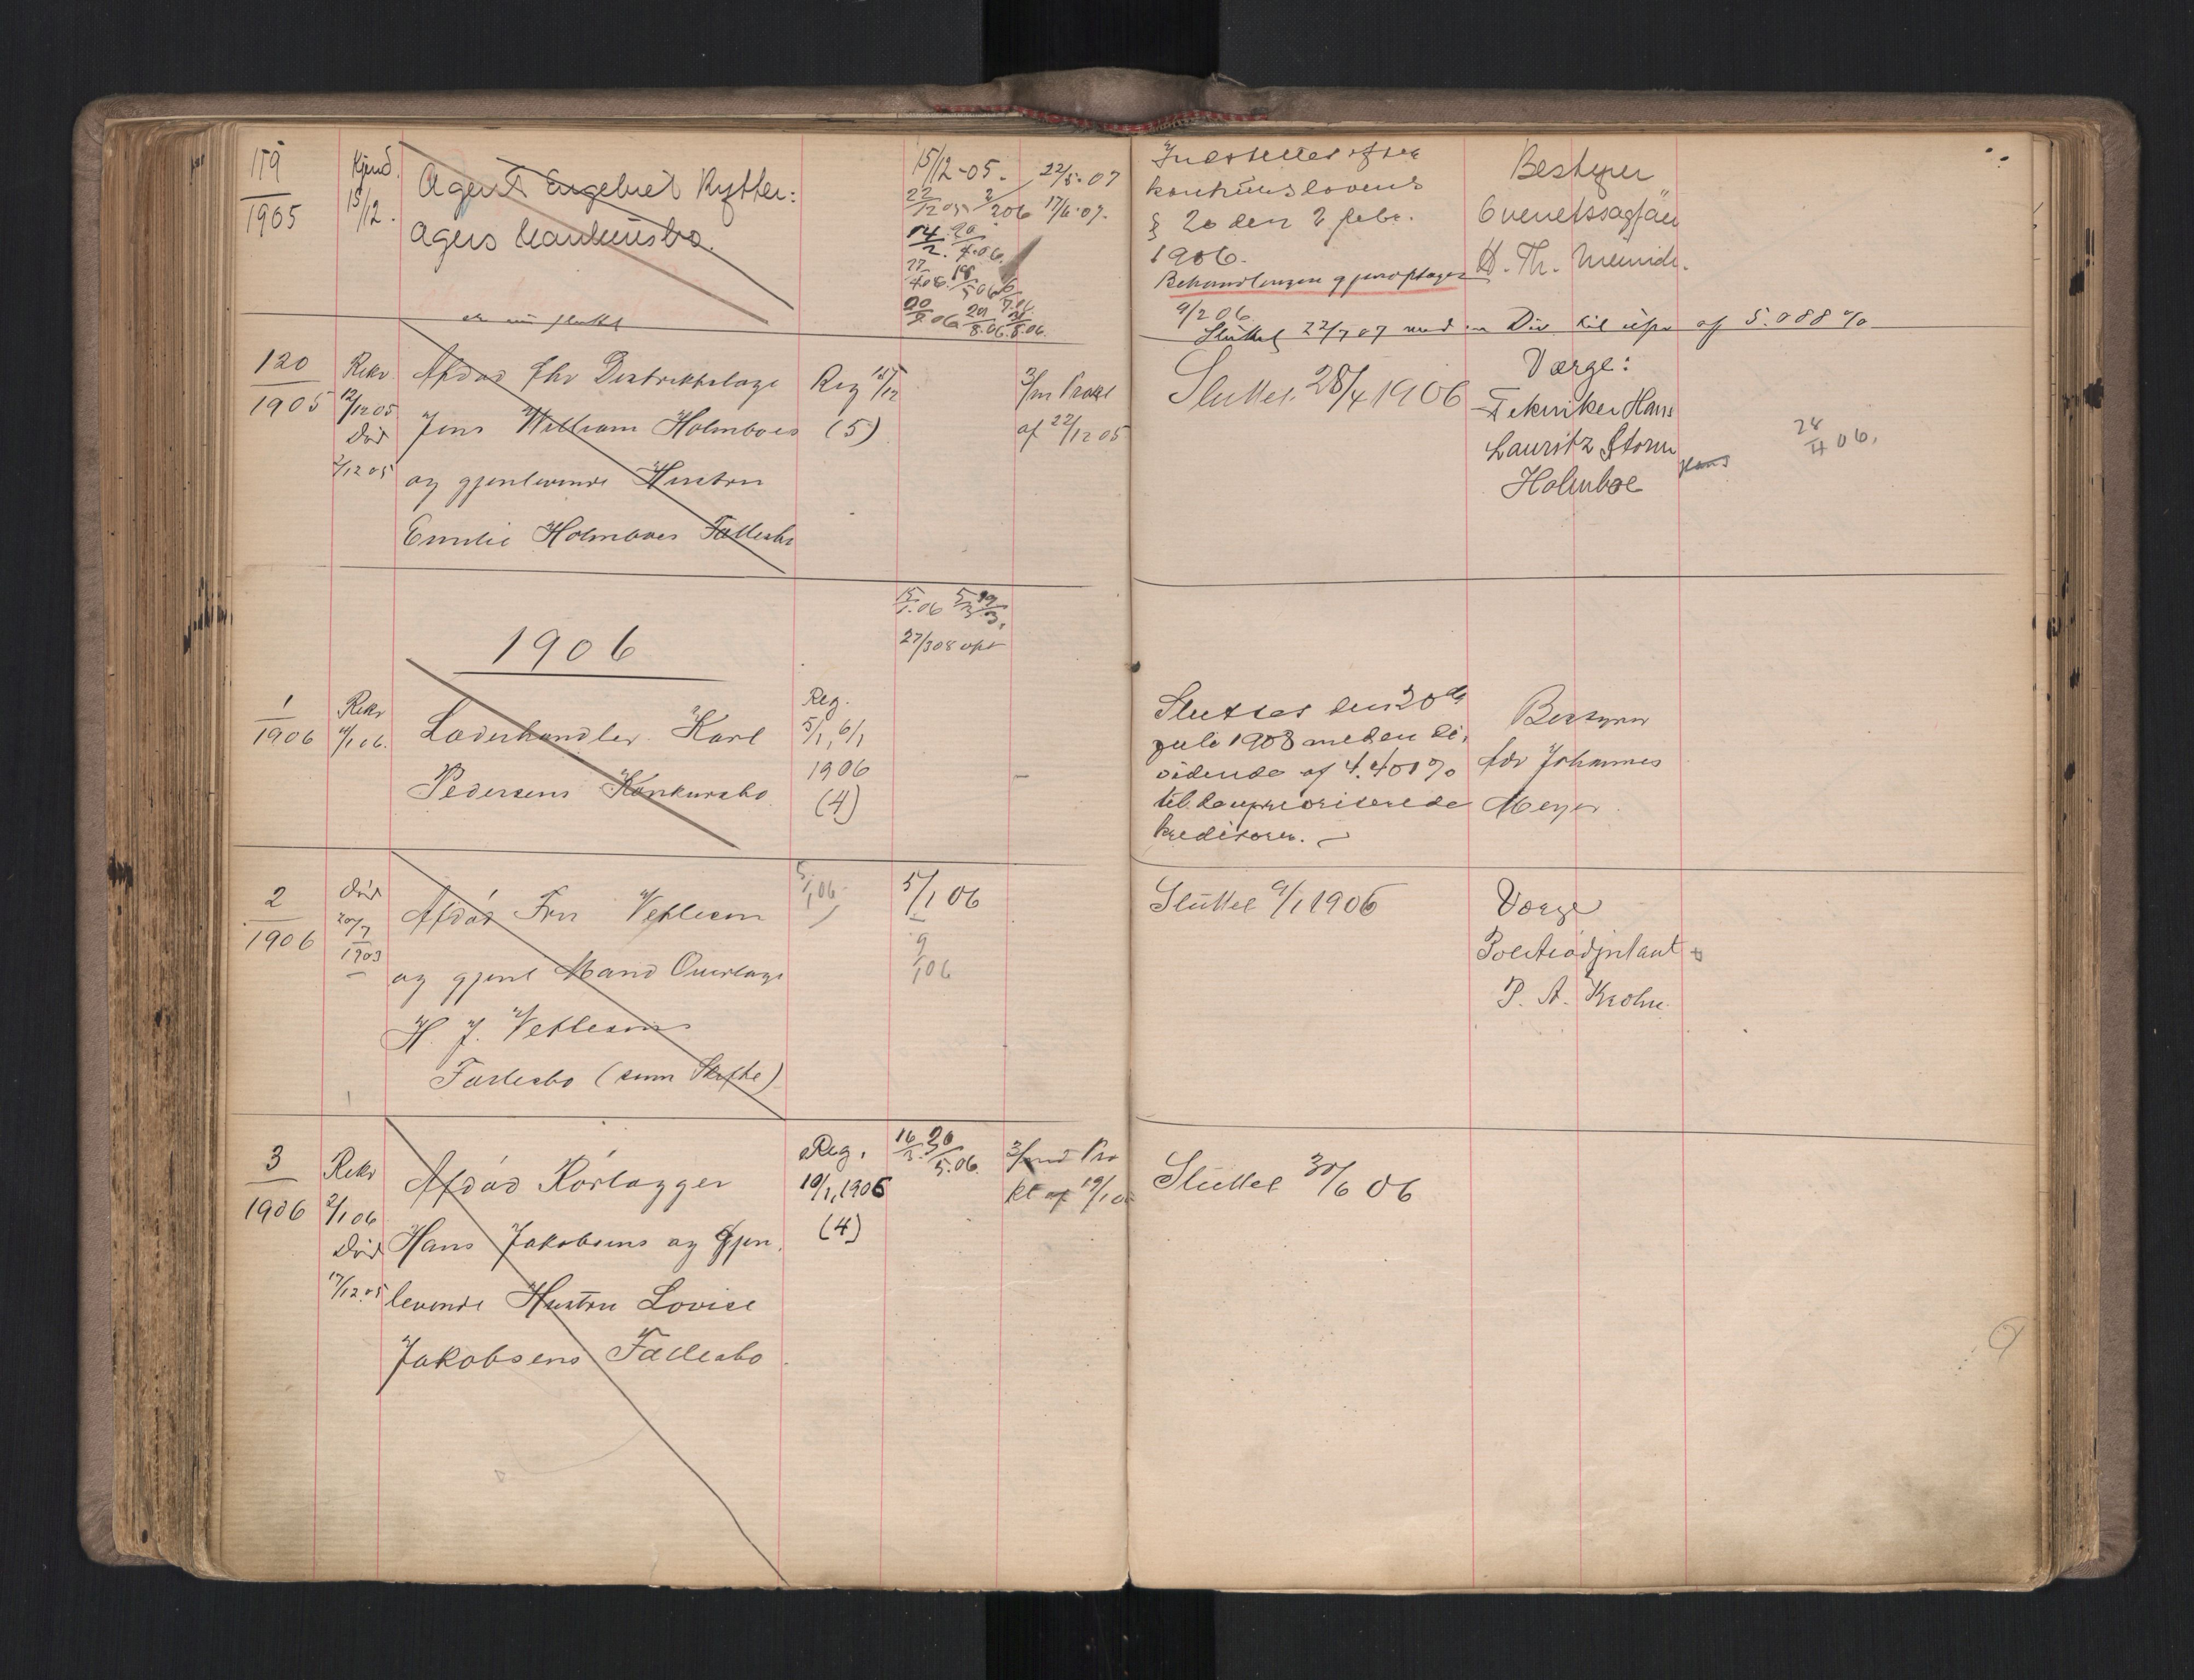 119
1905
Kjend.
15/12.
Agent Engebret Rytter:
agers konkursbo.
15/12-05.
22/5-07
17/6.07.
Indstilles efter
konkurslovens
§ 20 den 2 febr.
1906.
Behandlingen gjenoptages
9/2 06.
Sluttet 22/7 07 med en Div til upr af 5.088 %
Bestyrer
Overretssagfør
H. Th. Meinich.
120
1905
Rekv.
12/12 05
Død
2/12 05
Afdød fhv Distriktslæge
Jens William Holmboes
og gjenlevende Hustru
Emilie Holmboes Fællesbo
Reg 15/12
(5)
3/m Prokl
af 22/12 05
Sluttet 28/4 1906
Værge:
Tekniker Hans
Lauritz Storm
Holmboe
28/4 06.
1906
15/1.06
27/3 08
1
1906
Rekv
4/1 06.
Læderhandler Karl
Pedersens Konkursbo
Reg.
5/1, 6/1
1906
(4)
Sluttet den 20de
juli 1908 med en di-
vidende af 4.401 %
til de uprioriterede
kreditorer.
Bestyrer
Adv Johannes
Meyer
2
1906
Død
20/7
1903
Afdød Fru Vetlesen
og gjenl Mand Overlæge
H. J. Vetlesens
Fællesbo (sum Skifte)
5/1 06
5/1 06
9/1 06
Sluttet 9/1 1906
Værge
Politiadjutant
P. A. Krohn
3
1906
Rekv
2/1 06
Død
17/12.05
Afdød Rørlægger
Hans Jakobsens og gjen
levende Hustru Lovise
Jakobsens Fællesbo
Reg.
10/1, 1906
(4)
16/3. 30/5.06.
3/md Pro
kl af 19/1 0
Sluttet 30/6 06